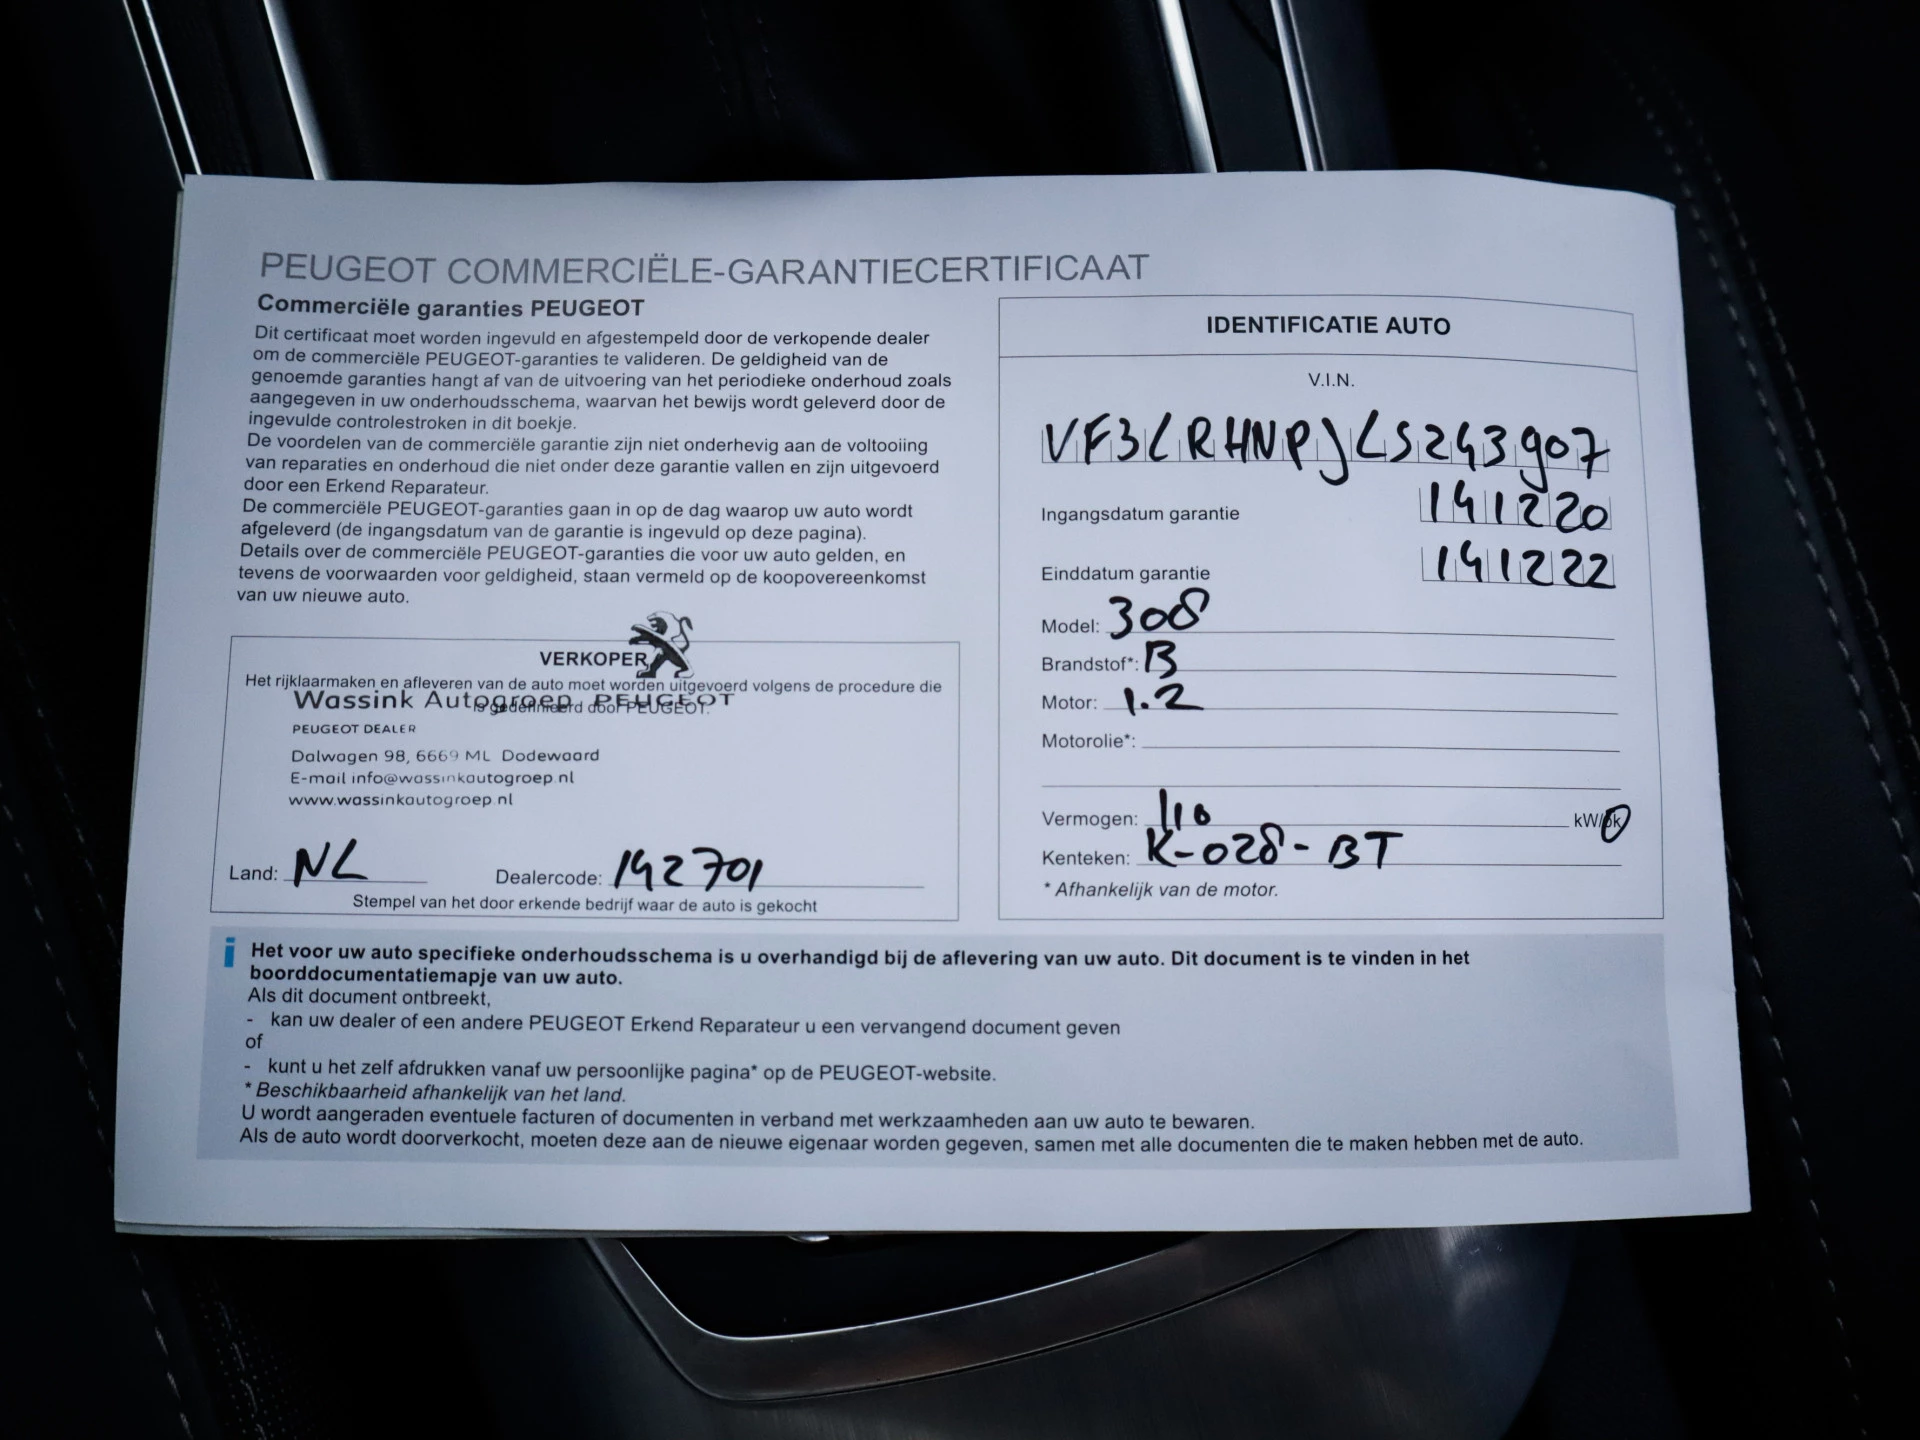 PEUGEOT COMMERCIËLE-GARANTIECERTIFICAAT
Commerciële garanties PEUGEOT
Dit certificaat moet worden ingevuld en afgestempeld door de verkopende dealer
om de commerciële PEUGEOT-garanties te valideren. De geldigheid van de
genoemde garanties hangt af van de uitvoering van het periodieke onderhoud zoals
aangegeven in uw onderhoudsschema, waarvan het bewijs wordt geleverd door de
ingevulde controlestroken in dit boekje.
De voordelen van de commerciële garantie zijn niet onderhevig aan de voltooiing
van reparaties en onderhoud die niet onder deze garantie vallen en zijn uitgevoerd
door een Erkend Reparateur.
De commerciële PEUGEOT-garanties gaan in op de dag waarop uw auto wordt
afgeleverd (de ingangsdatum van de garantie is ingevuld op deze pagina).
Details over de commerciële PEUGEOT-garanties die voor uw auto gelden, en
tevens de voorwaarden voor geldigheid, staan vermeld op de koopovereenkomst
van uw nieuwe auto.
VERKOPER
Het rijklaarmaken en afleveren van de auto moet worden uitgevoerd volgens de procedure die
is gedefinieerd door PEUGEOT.
Wassink Autogroep PEUGEOT
PEUGEOT DEALER
Dalwagen 98, 6669 ML Dodewaard
E-mail info@wassinkautogroep.nl
www.wassinkautogroep.nl
Land: NL Dealercode: 142701
Stempel van het door erkende bedrijf waar de auto is gekocht
IDENTIFICATIE AUTO
V.I.N.
VF3LRHNPJLS243907
Ingangsdatum garantie 141220
Einddatum garantie 141222
Model: 308
Brandstof*: B
Motor: 1.2
Motorolie*:
Vermogen: 110 kW/pk
Kenteken: K-028-BT
* Afhankelijk van de motor.
i Het voor uw auto specifieke onderhoudsschema is u overhandigd bij de aflevering van uw auto. Dit document is te vinden in het
boorddocumentatiemapje van uw auto.
Als dit document ontbreekt,
- kan uw dealer of een andere PEUGEOT Erkend Reparateur u een vervangend document geven
of
- kunt u het zelf afdrukken vanaf uw persoonlijke pagina* op de PEUGEOT-website.
* Beschikbaarheid afhankelijk van het land.
U wordt aangeraden eventuele facturen of documenten in verband met werkzaamheden aan uw auto te bewaren.
Als de auto wordt doorverkocht, moeten deze aan de nieuwe eigenaar worden gegeven, samen met alle documenten die te maken hebben met de auto.